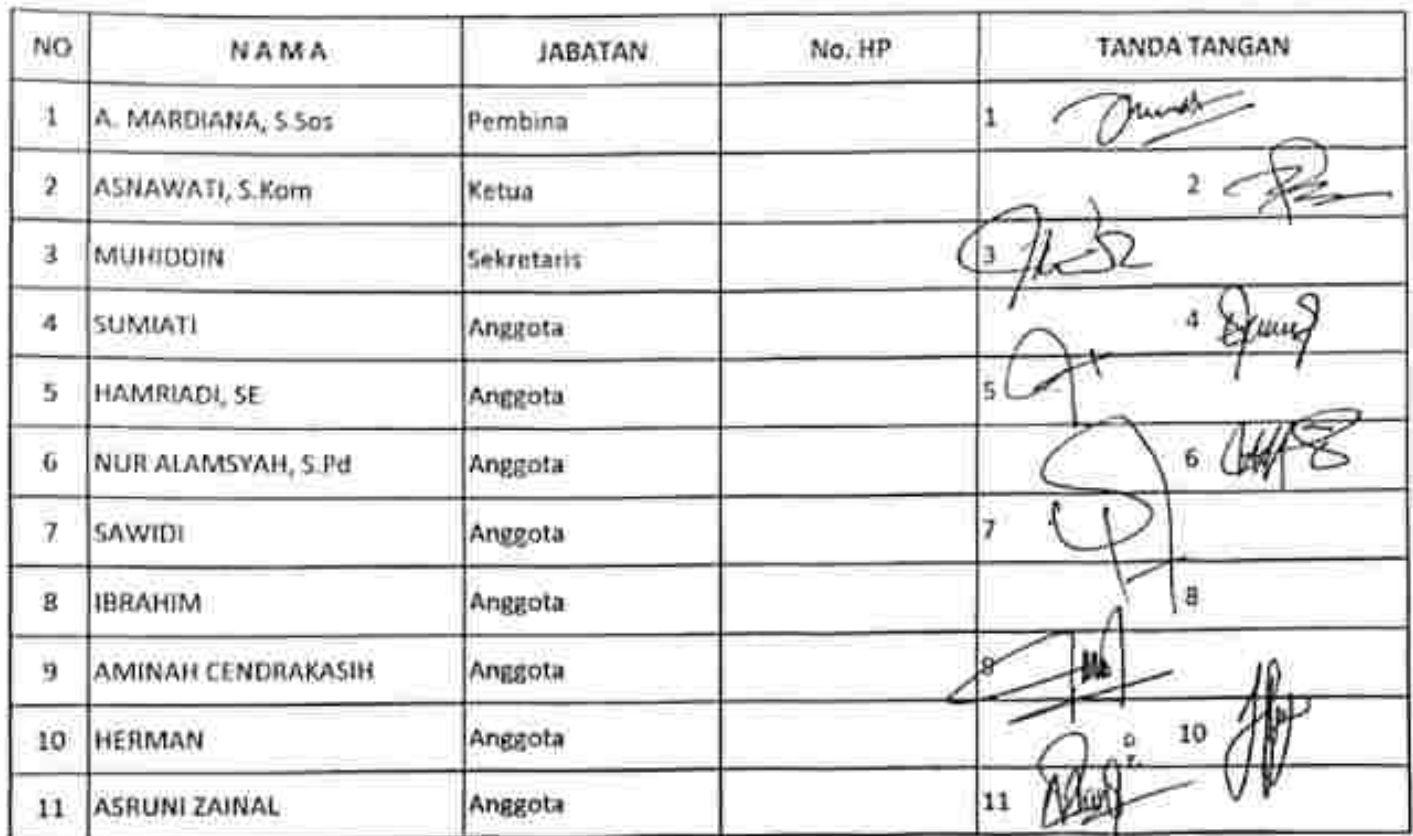 NO N A M A JABATAN No. HP TANDA TANGAN
1 A. MARDIANA, S.Sos Pembina 1
2 ASNAWATI, S.Kom Ketua 2
3 MUHIDDIN Sekretaris 3
4 SUMIATI Anggota 4
5 HAMRIADI, SE Anggota 5
6 NUR ALAMSYAH, S.Pd Anggota 6
7 SAWIDI Anggota 7
8 IBRAHIM Anggota 8
9 AMINAH CENDRAKASIH Anggota 9
10 HERMAN Anggota 10
11 ASRUNI ZAINAL Anggota 11